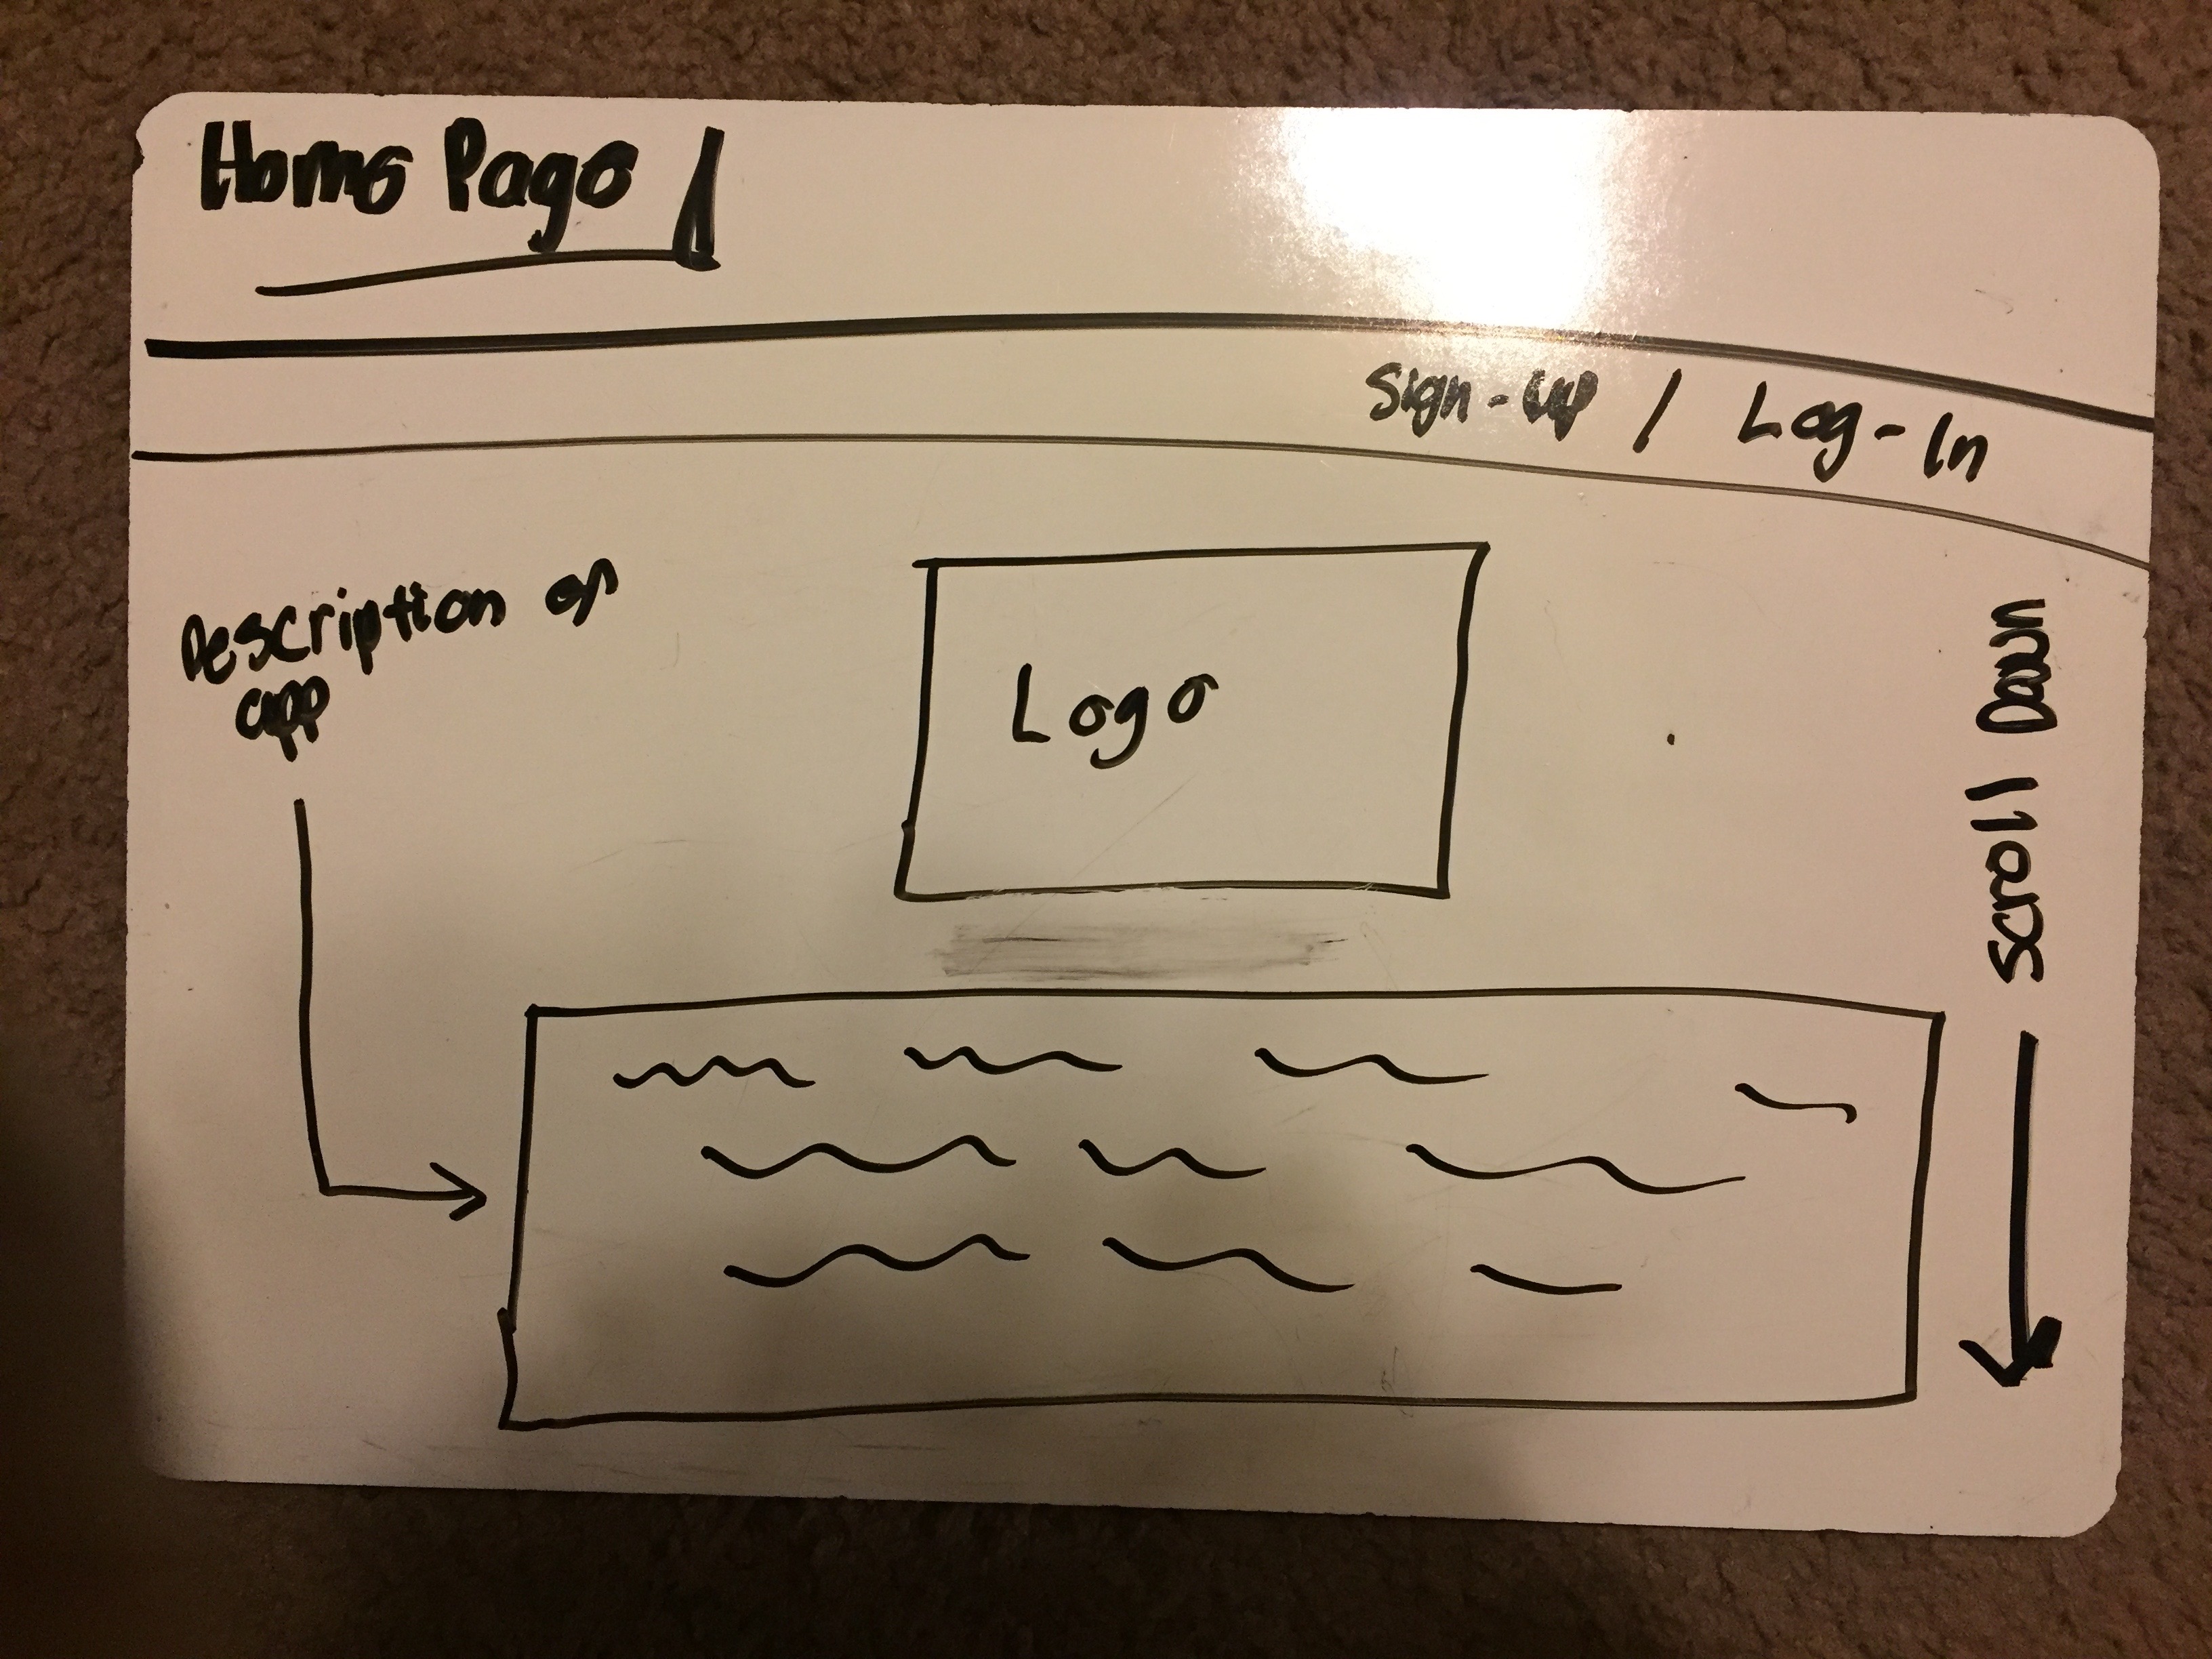 Home Page
Sign-up / Log-In
Description of
app
Logo
Scroll Down